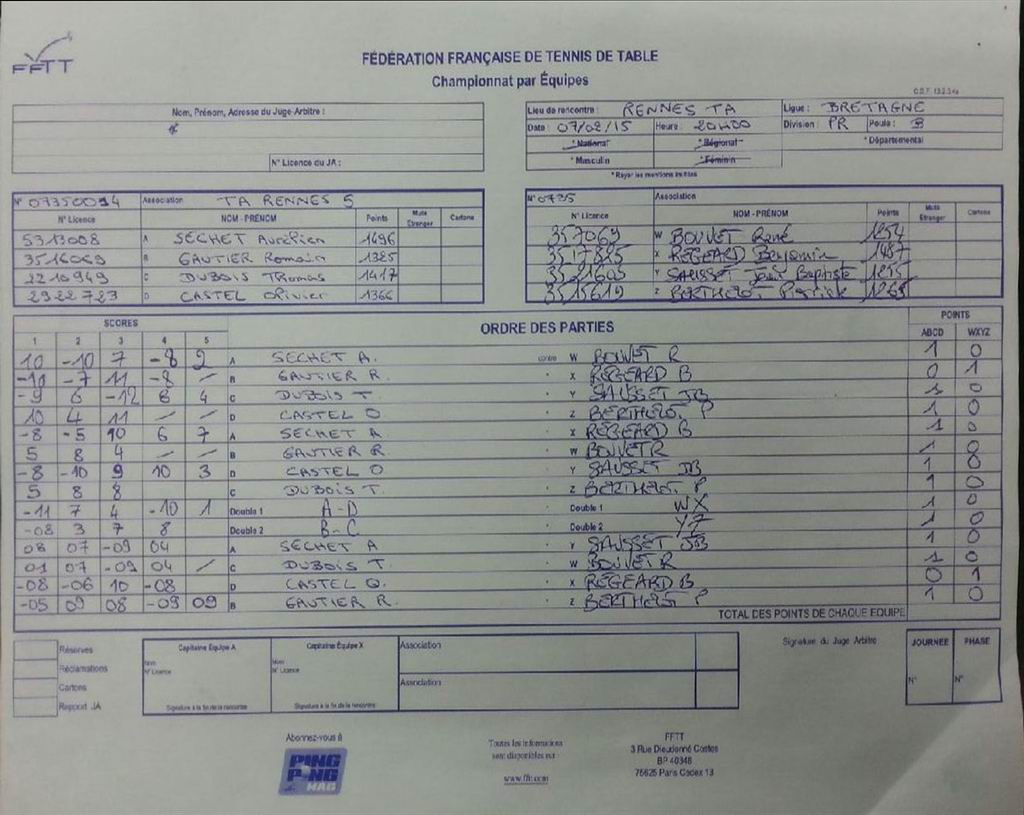 FFTT
FÉDÉRATION FRANÇAISE DE TENNIS DE TABLE
Championnat par Équipes
Nom, Prénom, Adresse du Juge-Arbitre :
N° Licence du JA :
Lieu de rencontre : RENNES TA Ligue : BRETAGNE
Date : 07/02/15 Heure : 20H00 Division : PR Poule : B
* National * Régional * Départemental
* Masculin * Féminin
* Rayer les mentions inutiles
N° 07350014 Association TA RENNES 5
N° Licence NOM - PRÉNOM Points Muté Etranger Cartons
5313008 A SECHET Aurélien 1496
3516069 B GAUTIER Romain 1385
2210949 C DUBOIS Thomas 1417
2922723 D CASTEL Olivier 1366
N° 0735 Association
N° Licence NOM - PRÉNOM Points Muté Etranger Cartons
357069 W BOUVET René 1254
X REGEARD Benjamin 1487
3521603 Y SAUSSET Jean Baptiste
3515619 Z Pierrick 1265
SCORES ORDRE DES PARTIES POINTS
1 2 3 4 5 ABCD WXYZ
10 -10 7 -8 2 A SECHET A. contre W BOUVET R 1 0
-10 -7 11 -8 / B GAUTIER R. X REGEARD B 0 1
-9 6 -12 6 4 C DUBOIS T. Y SAUSSET JB 1 0
10 4 11 / / D CASTEL O Z P 1 0
-8 -5 10 6 7 A SECHET A X REGEARD B 1 0
5 8 4 / / B GAUTIER R W BOUVET R 1 0
-8 -10 9 10 3 D CASTEL O Y SAUSSET JB 1 0
5 8 8 C DUBOIS T. Z P 1 0
-11 7 4 -10 1 Double 1 A-D Double 1 WX 1 0
-08 3 7 8 Double 2 B-C Double 2 YZ 1 0
08 07 -09 04 A SECHET A Y SAUSSET JB 1 0
01 07 -09 04 / C DUBOIS T. W BOUVET R 1 0
-08 -06 10 -08 D CASTEL O. X REGEARD B 0 1
-05 09 08 -09 09 B GAUTIER R. Z P 1 0
TOTAL DES POINTS DE CHAQUE EQUIPE
Réserves
Réclamations
Cartons
Rapport JA
Capitaine Équipe A
Nom
N° Licence
Signature à la fin de la rencontre
Capitaine Équipe X
Nom
N° Licence
Signature à la fin de la rencontre
Association
Association
Signature du Juge Arbitre
JOURNEE PHASE
N° N°
Abonnez-vous à
PING PONG MAG
Toutes les informations
sont disponibles sur
www.fftt.com
FFTT
3 Rue Dieudonné Costes
BP 40348
75625 Paris Cedex 13